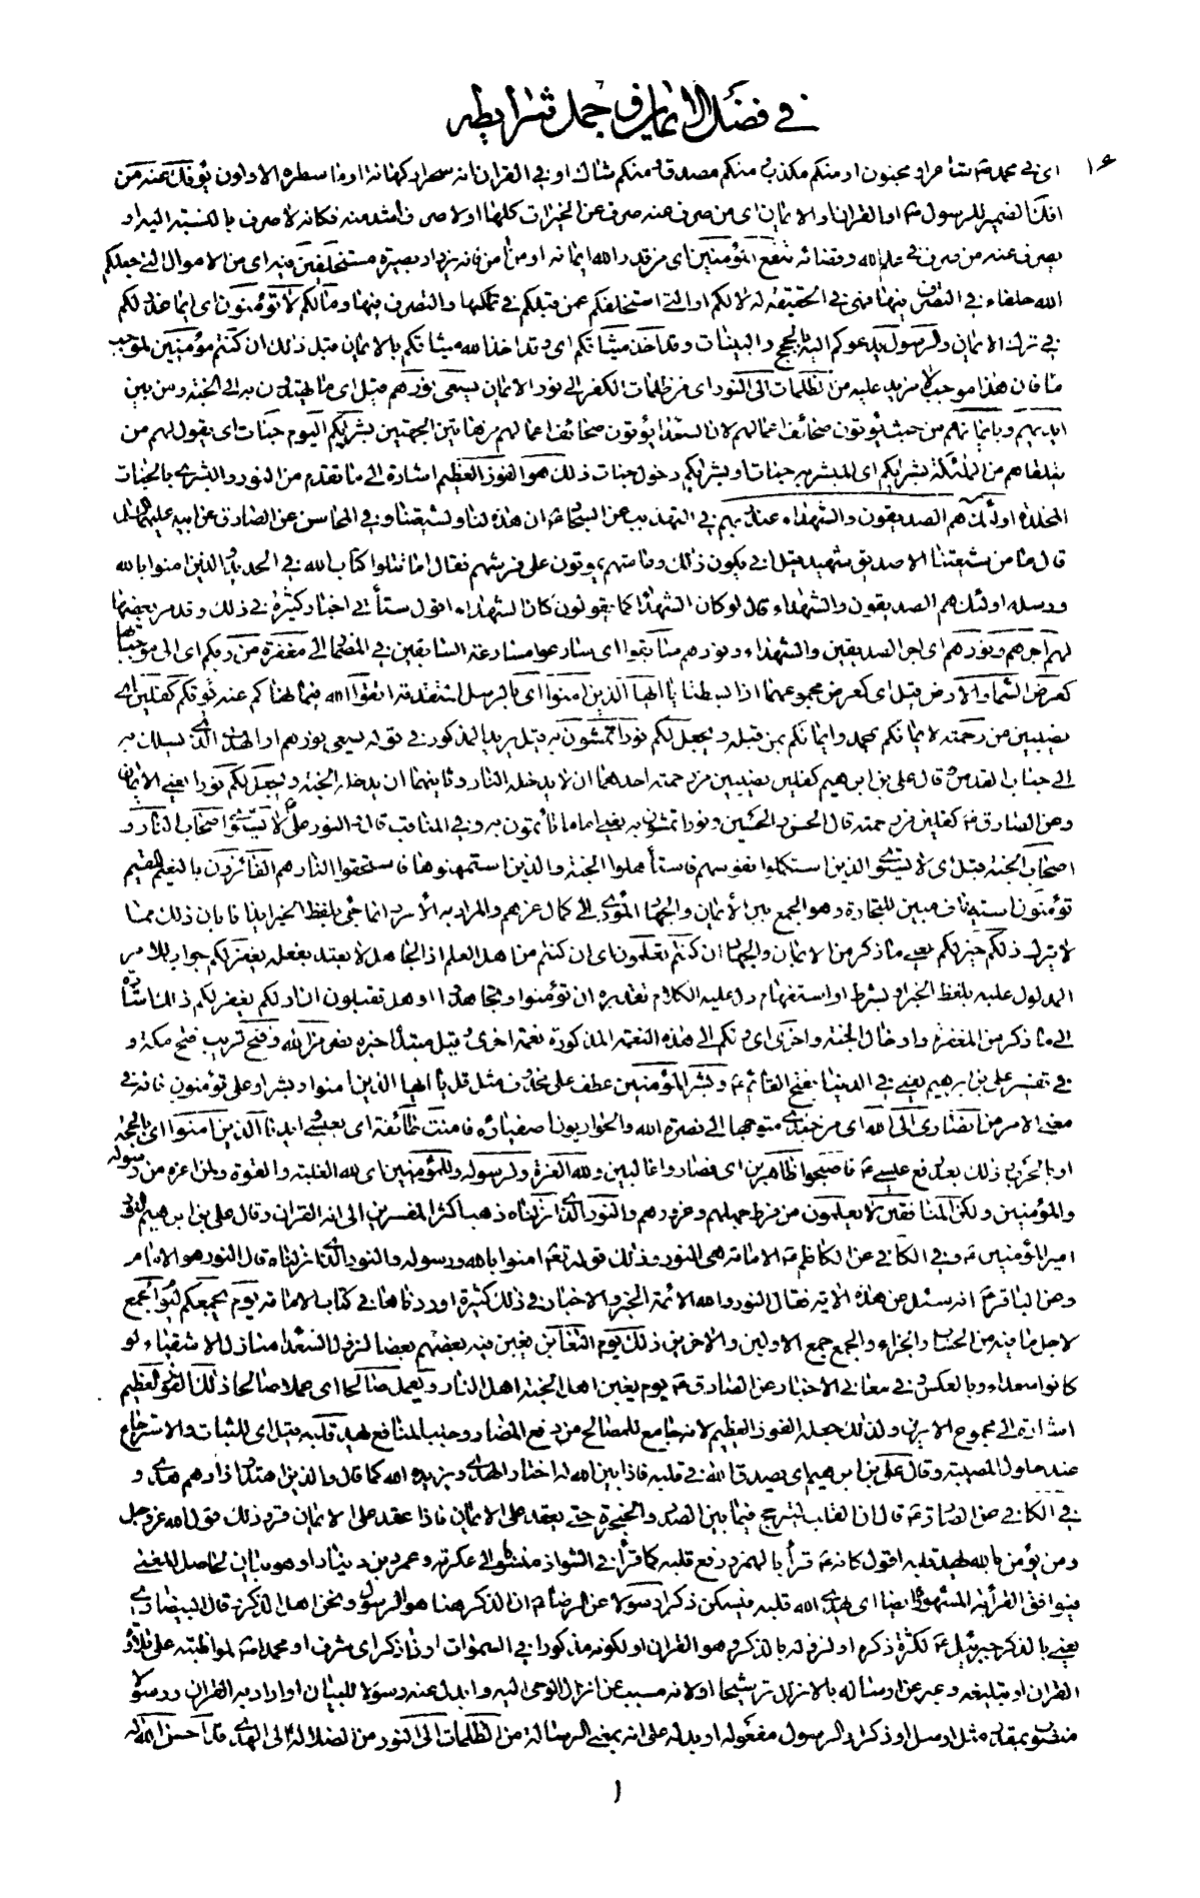 في فضل الايمان وجمل شرايطه
١٤
اي في محمد ص شاعر او مجنون او منكم مكذب و منكم مصدق و منكم شاك او في القران انه سحر او كهانة او ما سطره الاولون يؤفك عنه من
افك الضمير للرسول ص او القران او الايمان اى من صرف عنه صرف عن الخيرات كلها او لا صرف اشد منه فكانه لا صرف بالنسبة اليه او
يصرف عنه من صرف في علم الله و قضائه تنفع المؤمنين اى من قدر الله ايمانه او من امن فانه يزداد بصيرة مستخلفين فيه اى من الاموال التي جعلكم
الله خلفاء في التصرف فيها فهي في الحقيقة له لا لكم او التي استخلفكم عمن قبلكم في تملكها والتصرف فيها و مالكم لا تؤمنون اى ايما عذر لكم
في ترك الايمان والرسول يدعوكم اليه بالحجج والبينات و قد اخذ ميثاقكم اى و قد اخذ الله ميثاقكم بالايمان قبل ذلك ان كنتم مؤمنين لموجب
ما فان هذا موجب لا مزيد عليه من الظلمات الى النور اى من ظلمات الكفر الى نور الايمان يسعى نورهم قيل اى ما يهتدون به الى الجنة و من بين
ايديهم و بايمانهم من حيث يؤتون صحائف اعمالهم لان السعداء يؤتون صحائف اعمالهم من هاتين الجهتين بشريكم اليوم جنات اى يقول لهم من
يتلقاهم من الملئكة بشريكم اى المبشر به جنات او بشريكم دخول جنات ذلك هو الفوز العظيم اشارة الى ما تقدم من النور والبشرى بالجنات
المخلدة اولئك هم الصديقون والشهداء عند ربهم في التهذيب عن السجاد ع ان هذه لنا و لشيعتنا و في المحاسن عن الصادق عن ابيه عليهما السلم
قال ما من شيعتنا الا صديق شهيد قيل انى يكون ذلك و عامتهم يموتون على فرشهم فقال اما تتلوا كتاب الله في الحديد الذين امنوا بالله
و رسله اولئك هم الصديقون والشهداء قال لو كان الشهداء كما يقولون كان الشهداء اقول ستأتي اخبار كثيرة في ذلك و قد مر بعضها
لهم اجرهم و نورهم اى اجر الصديقين والشهداء و نورهم سابقوا اى سارعوا مسارعة السابقين في المضمار الى مغفرة من ربكم اى الى موجباتها
كعرض السماء والارض قيل اى كعرض مجموعهما اذا بسطتا يا ايها الذين امنوا اى بالرسل المتقدمة اتقوا الله فيما نهاكم عنه يؤتكم كفلين اى
نصيبين من رحمته لايمانكم بمحمد و ايمانكم بمن قبله و يجعل لكم نورا تمشون به قيل يريد المذكور في قوله يسعى نورهم او الهدى الذي يسلك به
الى جناب القدس و قال على بن ابرهيم كفلين نصيبين من رحمته احدهما ان لا يدخله النار و ثانيهما ان يدخله الجنة و يجعل لكم نورا يعني الايمان
و عن الصادق ع كفلين من رحمته قال الحسن والحسين و نورا تمشون به يعني اماما تأتمون به و في المناقب قال والنور على ع لا يستوى اصحاب النار و
اصحاب الجنة قيل اى لا يستوى الذين استكملوا نفوسهم فاستأهلوا الجنة والذين استمهنوها فاستحقوا النار هم الفائزون بالنعيم المقيم
تؤمنون استيناف مبين للتجارة و هو الجمع بين الايمان والجهاد المؤدى الى كمال عزهم والمراد به الامر و انما جئ بلفظ الخبر ايذانا بان ذلك مما
لا يترك ذلكم خير لكم يعني ما ذكر من الايمان والجهاد ان كنتم تعلمون اى ان كنتم من اهل العلم اذ الجاهل لا يعتد بفعله يغفر لكم جواب للامر
المدلول عليه بلفظ الخبر او لشرط او استفهام دل عليه الكلام تقديره ان تؤمنوا و تجاهدوا او هل تقبلون ان ادلكم يغفر لكم ذلك اشارة
الى ما ذكر من المغفرة و ادخال الجنة و اخرى اى و لكم الى هذه النعمة المذكورة نعمة اخرى و قيل مبتدأ خبره نصر من الله و فتح قريب فتح مكة و
في تفسير على بن ابرهيم يعني في الدنيا بفتح القائم ع و بشر المؤمنين عطف على محذوف مثل قل يا ايها الذين امنوا و بشر او على تؤمنون فانه في
معنى الامر من انصارى الى الله اى من جندى متوجها الى نصرة الله والحواريون اصفياؤه فامنت طائفة اى بعيسى ايدنا الذين امنوا اى بالحجة
او بالحرب و ذلك بعد رفع عيسى ع فاصبحوا ظاهرين اى فصاروا غالبين و لله العزة و لرسوله و للمؤمنين اى لله الغلبة والقوة و لمن اعزه من رسوله
والمؤمنين و لكن المنافقين لا يعلمون من فرط جهلهم و غرورهم والنور الذي انزلناه ذهب اكثر المفسرين الى انه القران و قال على بن ابرهيم النور
امير المؤمنين ع و في الكافي عن الكاظم ع الامامة هي النور و ذلك قوله تعالى امنوا بالله و رسوله والنور الذي انزلنا قال النور هو الامام
و عن الباقر ع انه سئل عن هذه الاية فقال النور والله الائمة الخبر والاخبار في ذلك كثيرة اوردناها في كتاب الامامة يوم يجمعكم ليوم الجمع
لاجل ما فيه من الحساب والجزاء والجمع جمع الاولين والاخرين ذلك يوم التغابن يغبن فيه بعضهم بعضا لنزول السعداء منازل الاشقياء لو
كانوا سعداء و بالعكس و في معاني الاخبار عن الصادق ع يوم يغبن اهل الجنة اهل النار و يعمل صالحا اى عملا صالحا ذلك الفوز العظيم
اشارة الى مجموع الامرين و لذلك جعله الفوز العظيم لانه جامع للمصالح من دفع المضار و جلب المنافع يهد قلبه قيل اى للثبات والاسترجاع
عند حلول المصيبة و قال على بن ابرهيم اى يصدق الله في قلبه فاذا بين الله له اختار الهدى و يزيده الله كما قال والذين اهتدوا زادهم هدى و
في الكافي عن الصادق ع قال ان القلب ليترجح فيما بين الصدر والحنجرة حتى يعقد على الايمان فاذا عقد على الايمان قر و ذلك قول الله عز و جل
و من يؤمن بالله يهد قلبه اقول كانه ع قرأ بالهمز و رفع قلبه كما قرأ في الشواذ منسوبا الى عكرمة و عمرو بن دينار او هو بيان لحاصل المعنى
فيوافق القراءة المشهورة ايضا اى يهدى الله قلبه فيسكن ذكرا رسولا عن الرضا ع ان الذكر هنا هو الرسول و نحن اهل الذكر و قال البيضاوي
يعني بالذكر جبرئيل ع لكثرة ذكره او لنزوله بالذكر و هو القران او لكونه مذكورا في السموات او ذا ذكر اى شرف او محمدا ص لمواظبته على تلاوة
القران او تبليغه و عبر عن ارساله بالانزال ترشيحا او لانه مسبب عن انزال الوحى اليه و ابدل عنه رسولا للبيان او اراد به القران و رسولا
منصوب بمقدر مثل ارسل او ذكرا والرسول مفعوله او بدله على انه بمعنى الرسالة من الظلمات الى النور من الضلالة الى الهدى قد احسن الله له
١